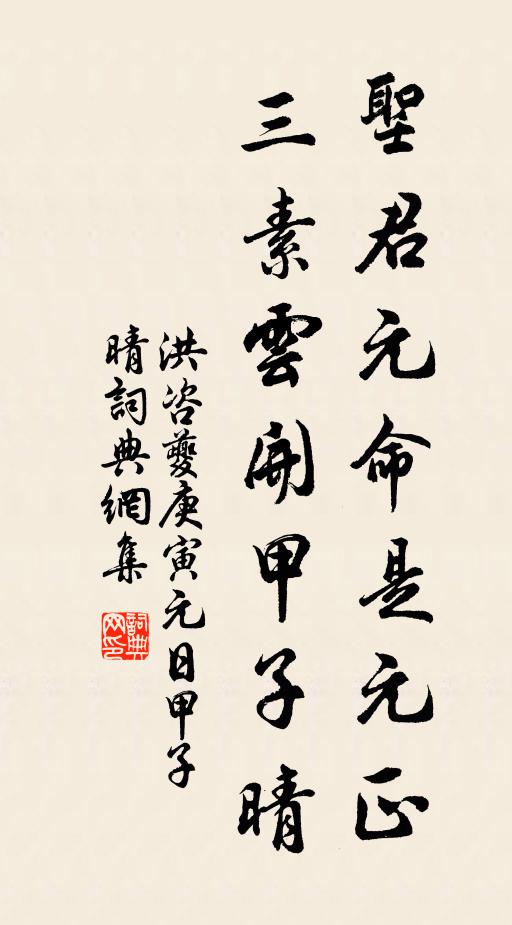 聖君元命是元正
三素雲開甲子晴
洪咨夔庚寅元日甲子
晴詞典網集
詞典
网印